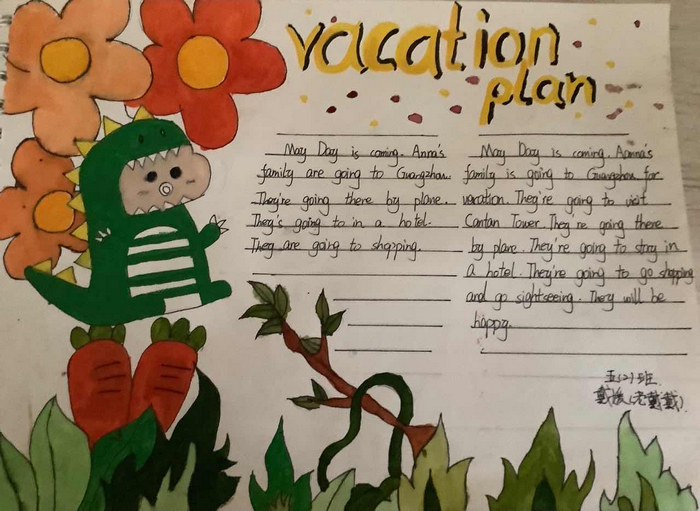 vacation
plan
May Day is coming. Anna's
family are going to Guangzhou.
They're going there by plane.
They's going to in a hotel.
They are going to shopping.
May Day is coming. Aanna's
family is going to Guangzhou for
vacation. They're going to visit
Cantan Tower. They're going there
by plane. They're going to stay in
a hotel. They're going to go shopping
and go sightseeing. They will be
happy.
五(2)班
戴(老戴戴)